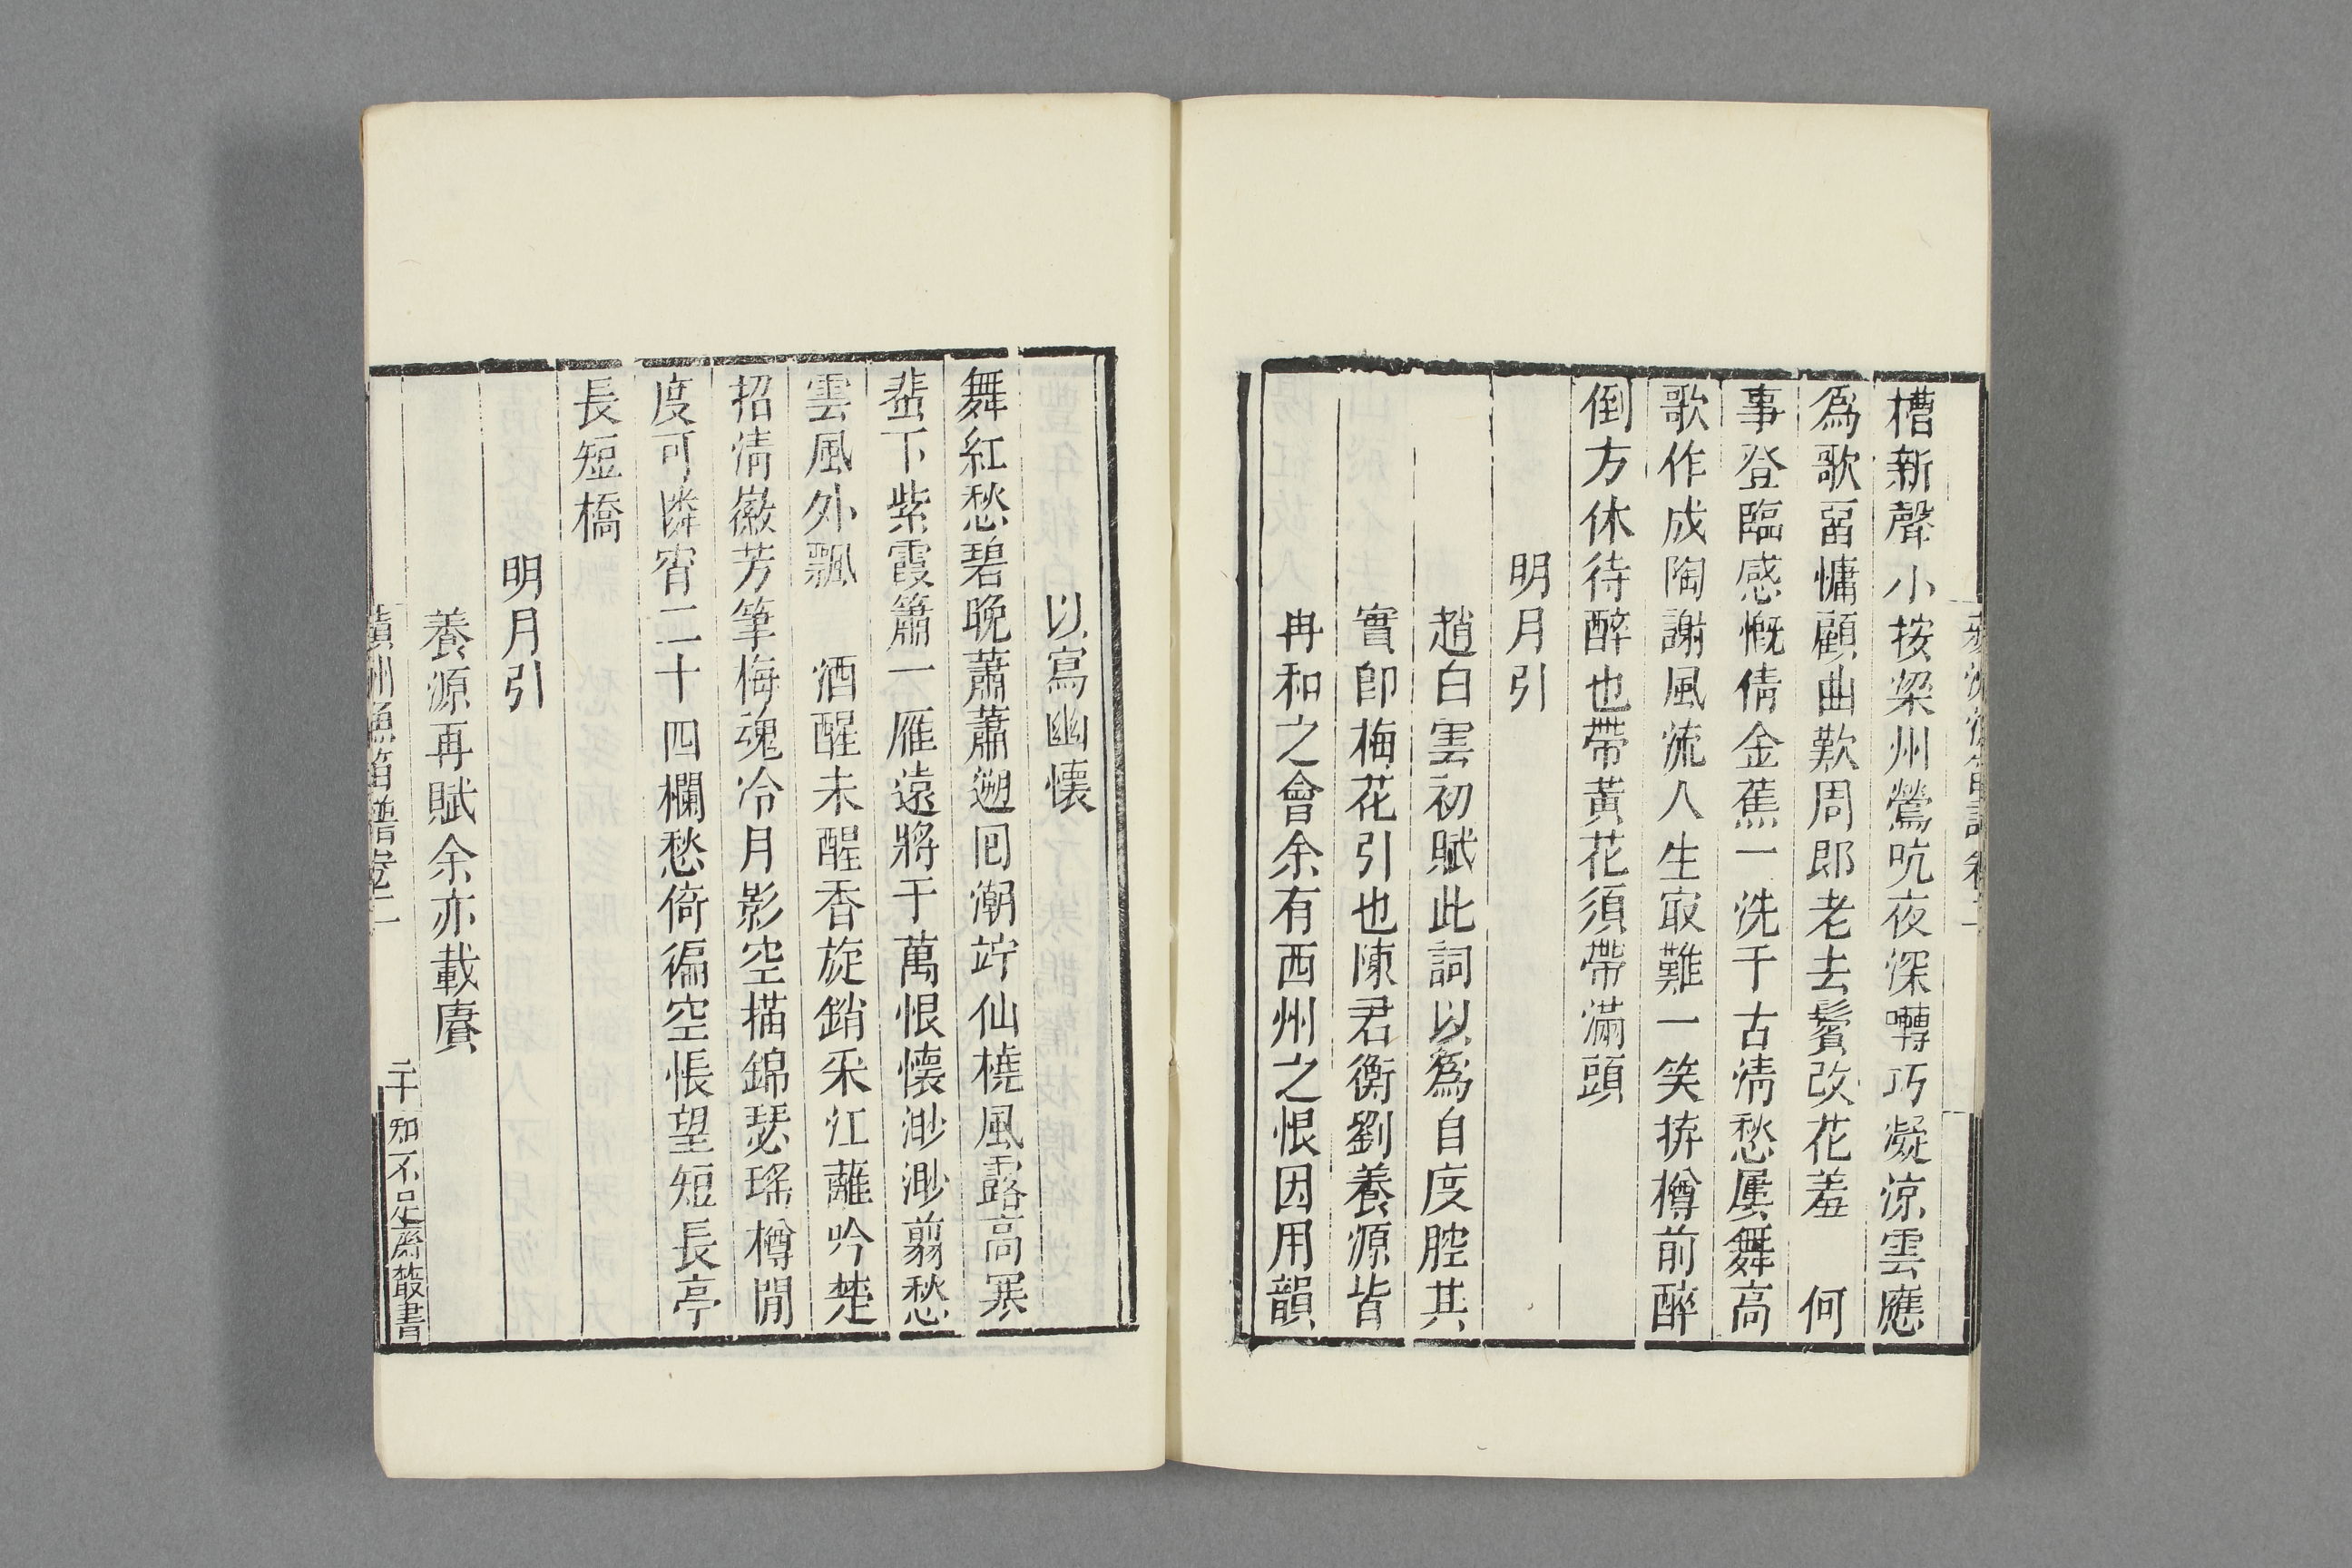 槽新聲小按梁州鶯吭夜深囀巧凝涼雲應
爲歌畱慵顧曲歎周郎老去鬢改花羞　何
事登臨感慨倩金蕉一洗千古清愁屢舞高
歌作成陶謝風流人生㝡難一笑拚樽前醉
倒方休待醉也帶黃花須帶滿頭
明月引
趙白雲初賦此詞以爲自度腔其
實卽梅花引也陳君衡劉養源皆
冉和之會余有西州之恨因用韻
以寫幽懷
舞紅愁碧晚蕭蕭遡囘潮竚仙橈風露高寒
蜚下紫霞簫一雁遠將千萬恨懷渺渺翦愁
雲風外飄　酒醒未醒香旋銷采江蘺吟楚
招清徽芳筆梅魂冷月影空描錦瑟瑤樽閒
度可憐宵二十四欄愁倚徧空悵望短長亭
長短橋
明月引
養源再賦余亦載賡
蘋洲漁笛譜卷二
二十　知不足齋叢書